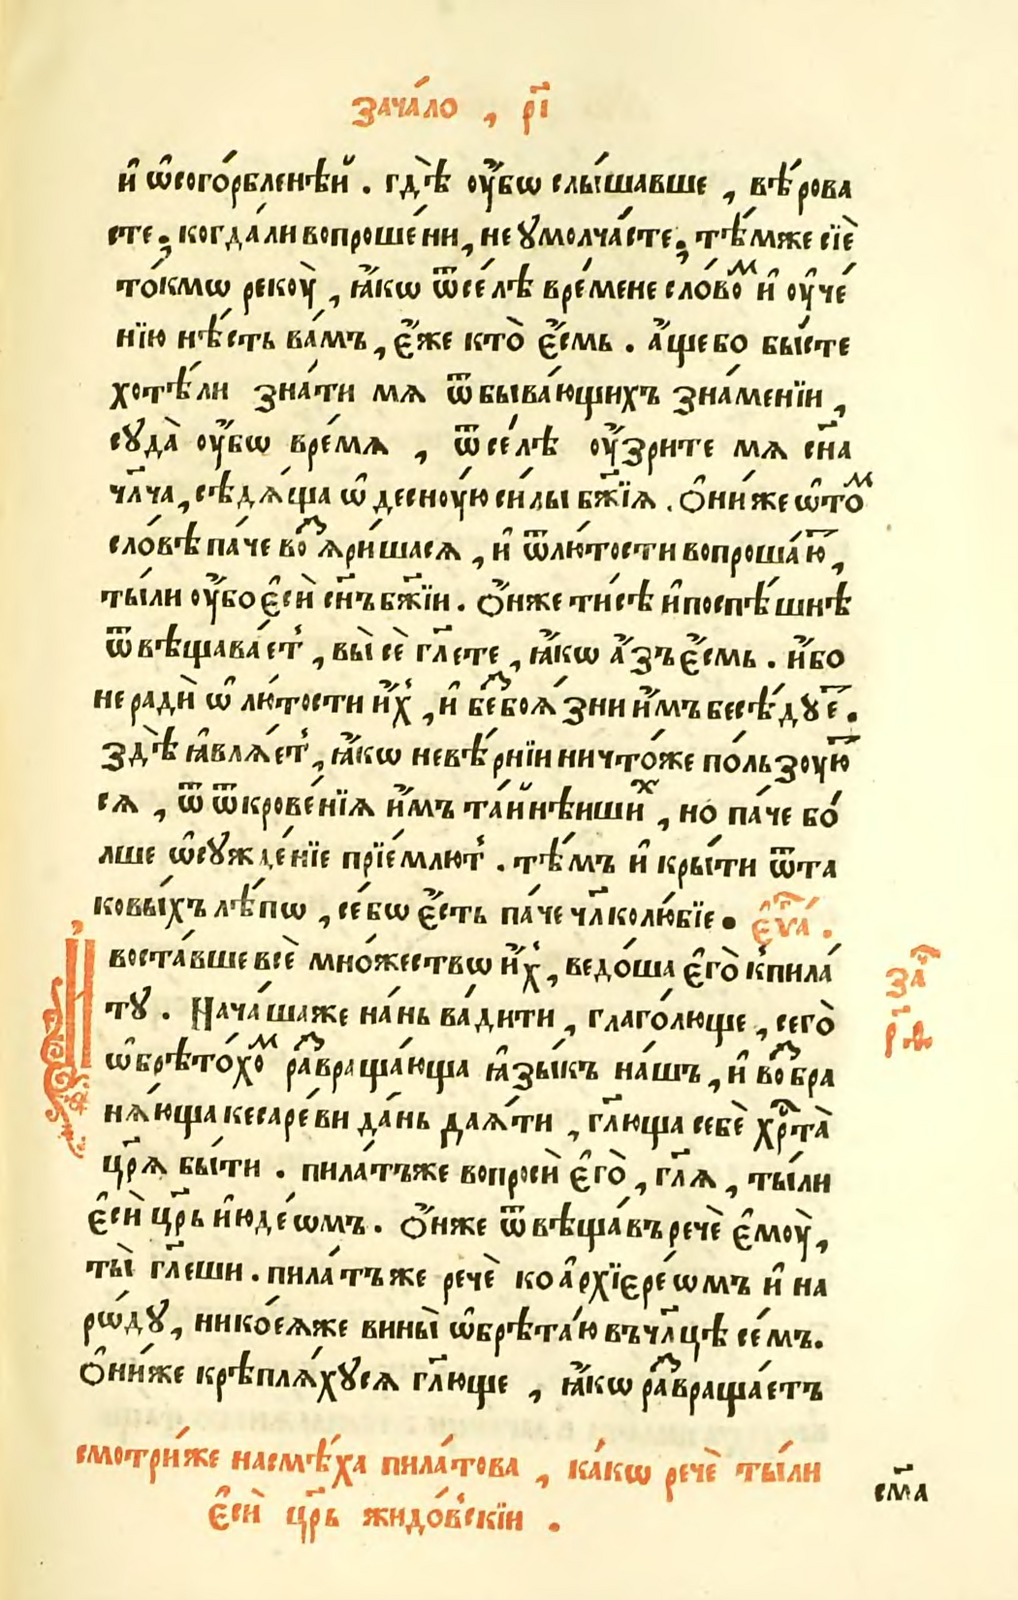 зача́ло , р҃і
и҆ ѡ҆согорбле́нѣй . гдѣ̀ ᲂу҆́бѡ слы́шавше , вѣ́рова
сте ; когда́ ли вопроше́ни , не ꙋмолча́сте ; тѣ́мже сїѐ
то́кмѡ рекꙋ̀ , ꙗ҆́кѡ ѿсе́лѣ вре́мене сло́воⷨ и҆ ᲂу҆че́
нїю нѣ́сть ва́мъ , є҆́же кто̀ є҆́смь . а҆́ще бо бы́сте
хотѣ́ли зна́ти мѧ ѿ быва́ющихъ зна́менїи ,
сꙋда̀ ᲂу҆́бѡ вре́мѧ , ѿсе́лѣ ᲂу҆́зрите мѧ сн҃а
чл҃ча , сѣдѧ́ща ѡ҆ деснꙋ́ю си́лы бж҃їѧ . Ѻ҆ни́ же ѡ҆ тоⷨ
сло́вѣ па́че воⷥѧри́шасѧ , и҆ ѿ лю́тости вопроша́юⷮ ,
ты́ ли ᲂу҆́бо є҆сѝ сн҃ъ бж҃їи . Ѻ҆́нже ти́сѣ и҆ поспѣ́шнѣ
ѿвѣщава́ет̾ , вы̀ сѐ гл҃ете , ꙗ҆́кѡ а҆́зъ є҆́смь . и҆́бо
не радѝ ѡ҆ лю́тости и҆́х̾ , и҆ беⷥбоѧ́зни и҆́мъ бесѣ́дꙋеⷮ .
здѣ̀ ꙗ҆влѧ́ет̾ , ꙗ҆́кѡ невѣ́рнїи ничто́же по́льзꙋюⷮ
сѧ , ѿ ѿкрове́нїѧ и҆́мъ та́йнѣишиⷯ , но́ па́че бо́
лше ѡ҆сꙋжде́нїе прїе́млют̾ . тѣ́мъ и҆ кры́ти ѿ та
ковы́хъ лѣ́пѡ , се́ бѡ є҆́сть па́че чл҃колю́бїе . є҆ѵⷢ҇а́ .
И҆ воста́вше всѐ мно́жествѡ и҆́х̾ , ведо́ша є҆го̀ к̾пила́
тꙋ . Нача́ша же на́нь ва́дити , глаго́люще , сего̀
ѡ҆брѣто́хоⷨ раⷥвраща́юща ꙗ҆зы́къ на́шъ , и҆ воⷥбра
нѧ́юща ке́сареви да́нь даѧ́ти , гл҃юща себѐ хрⷭ҇та̀
цр҃ѧ бы́ти . пила́тъже вопросѝ є҆го̀ , гл҃ѧ , ты́ ли
є҆сѝ цр҃ь и҆юде́ѡмъ . Ѻ҆́нже ѿвѣща́въ речѐ є҆мꙋ̀ ,
ты̀ гл҃еши . пила́тъ же речѐ ко а҆рхїере́ѡмъ и҆ на
ро́дꙋ , никое́ѧже вины̀ ѡ҆брѣта́ю въ чл҃цѣ се́мъ .
Ѻ҆ни́ же крѣплѧ́хꙋсѧ гл҃юще , ꙗ҆́кѡ раⷥвраща́етъ
заⷱ҇
р҃і
смотри́же насмѣ́ха пила́това , ка́кѡ речѐ ты́ ли
є҆сѝ цр҃ь жидо́вскїи .
см҃а